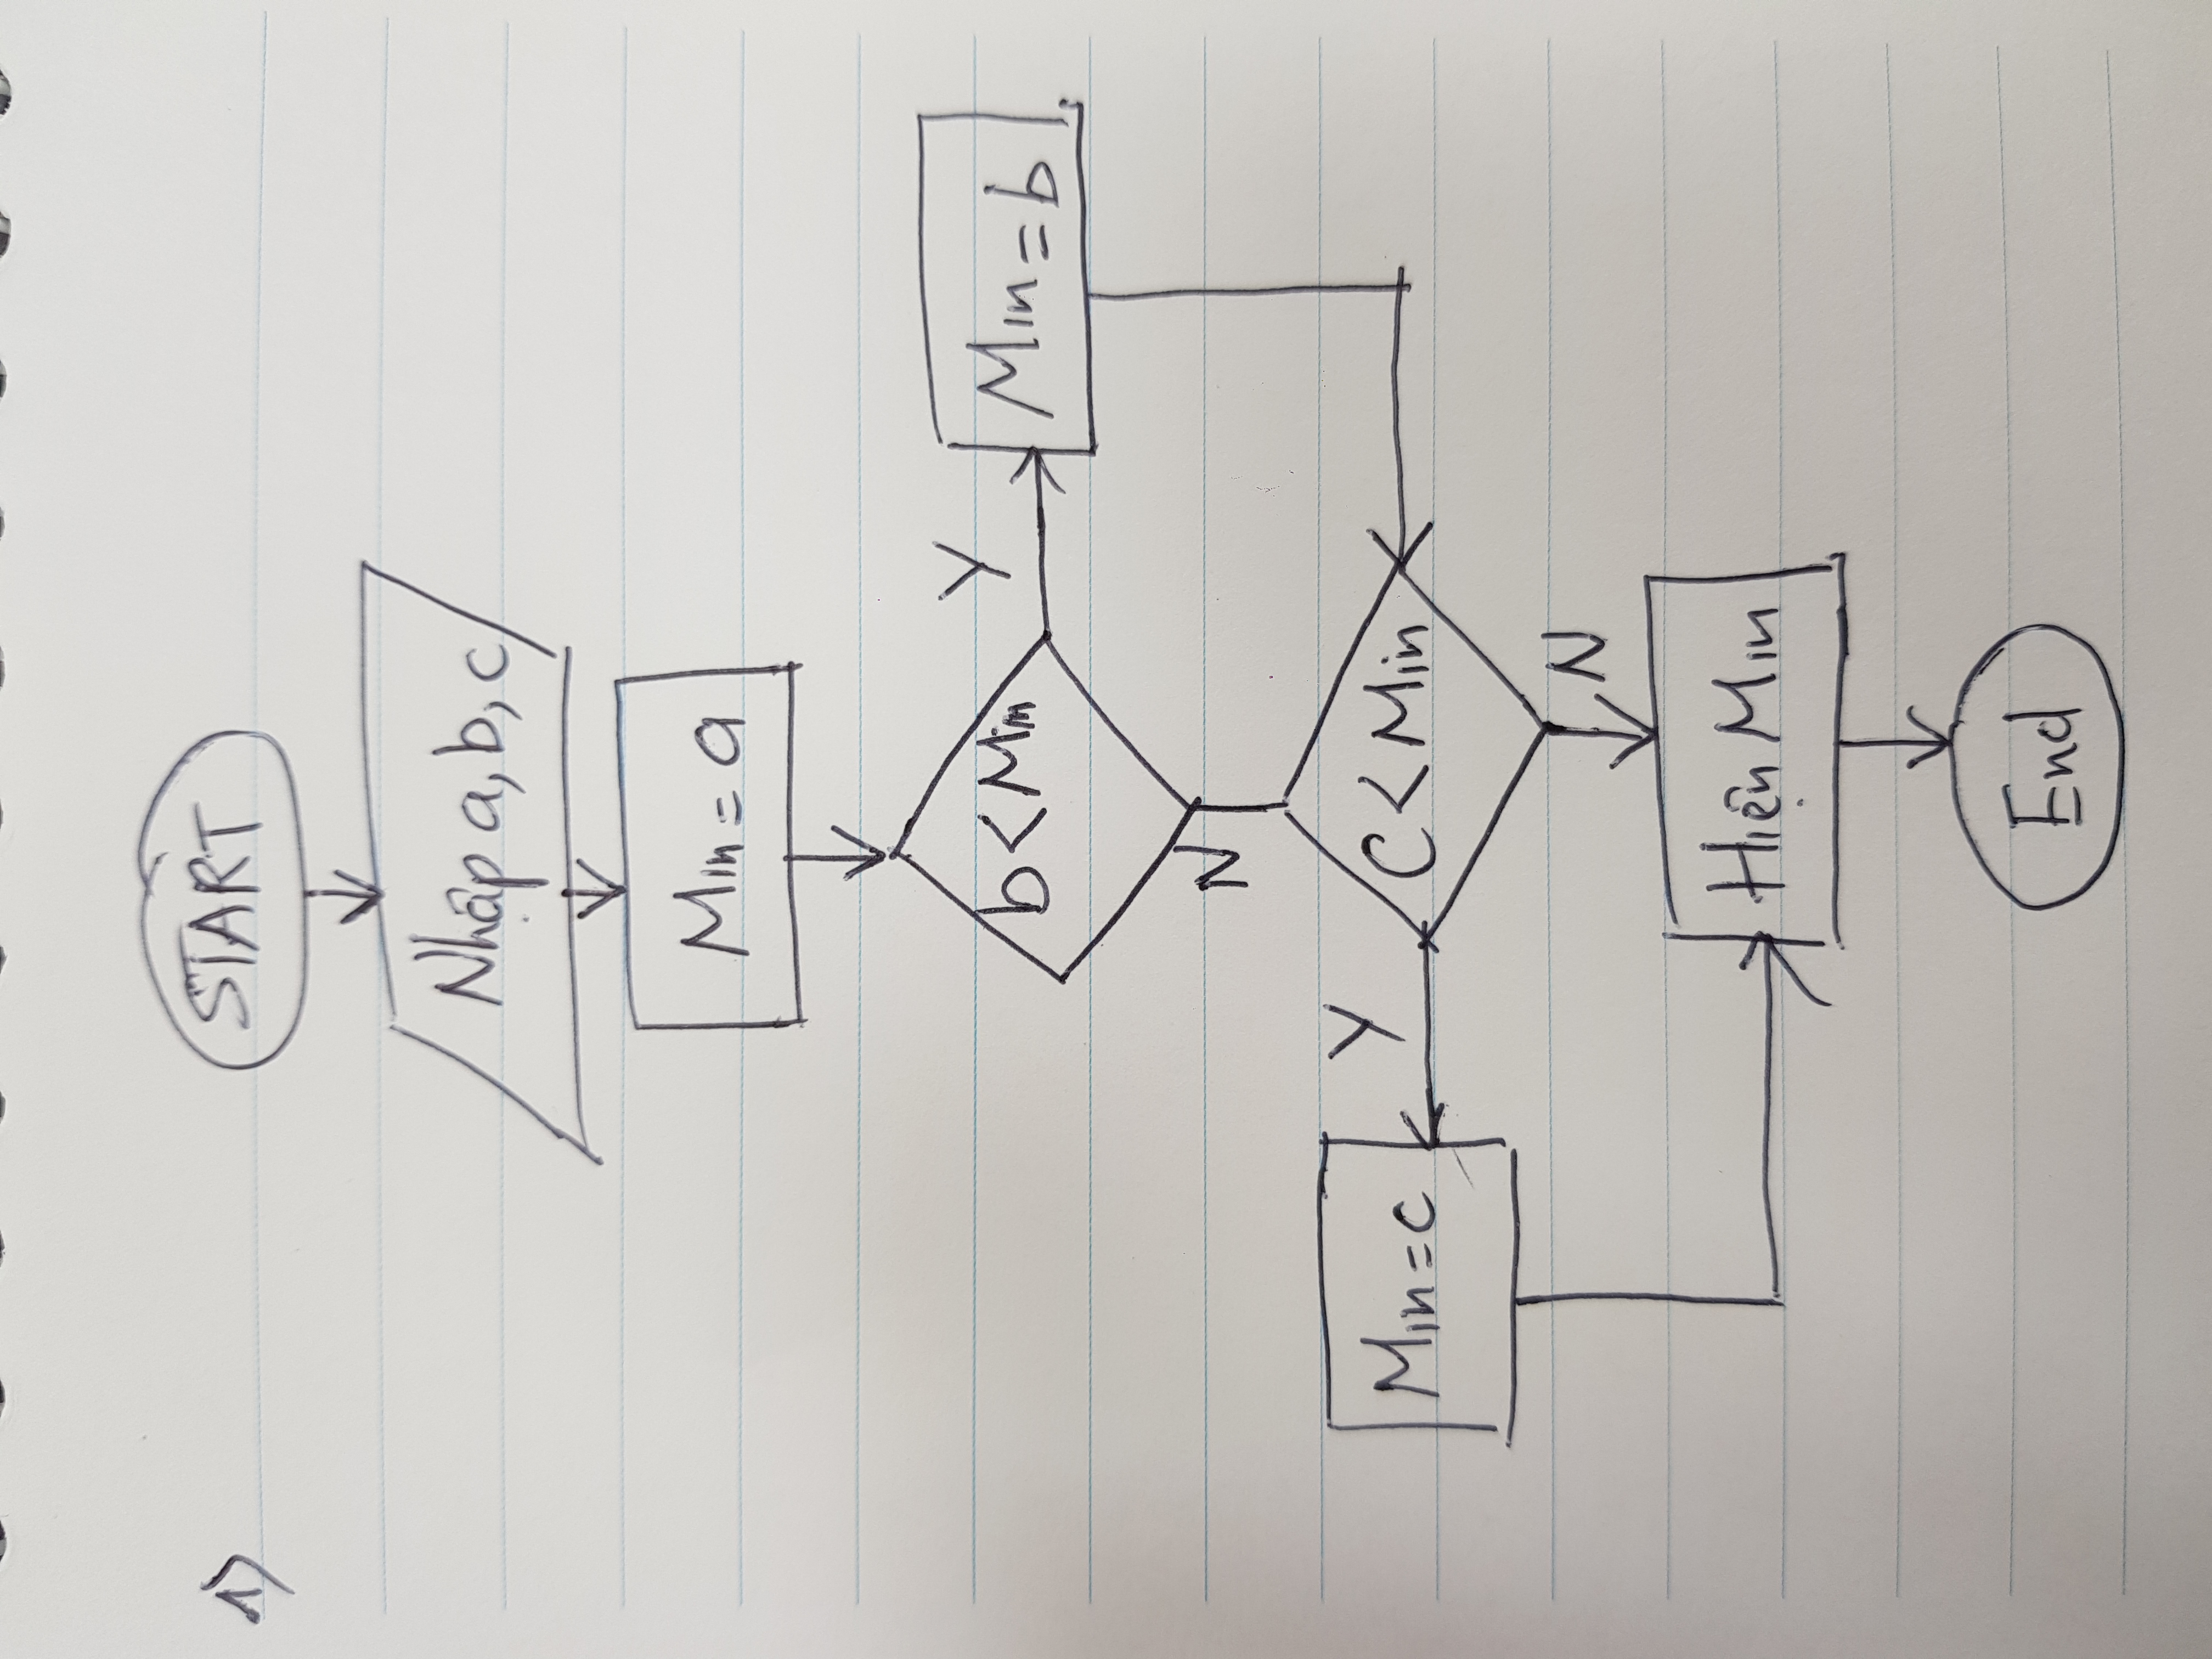 1)
START
Nhập a, b, c
Min = a
b < Min
Y
Min = b
N
C < Min
Y
Min = c
N
Hiện Min
End